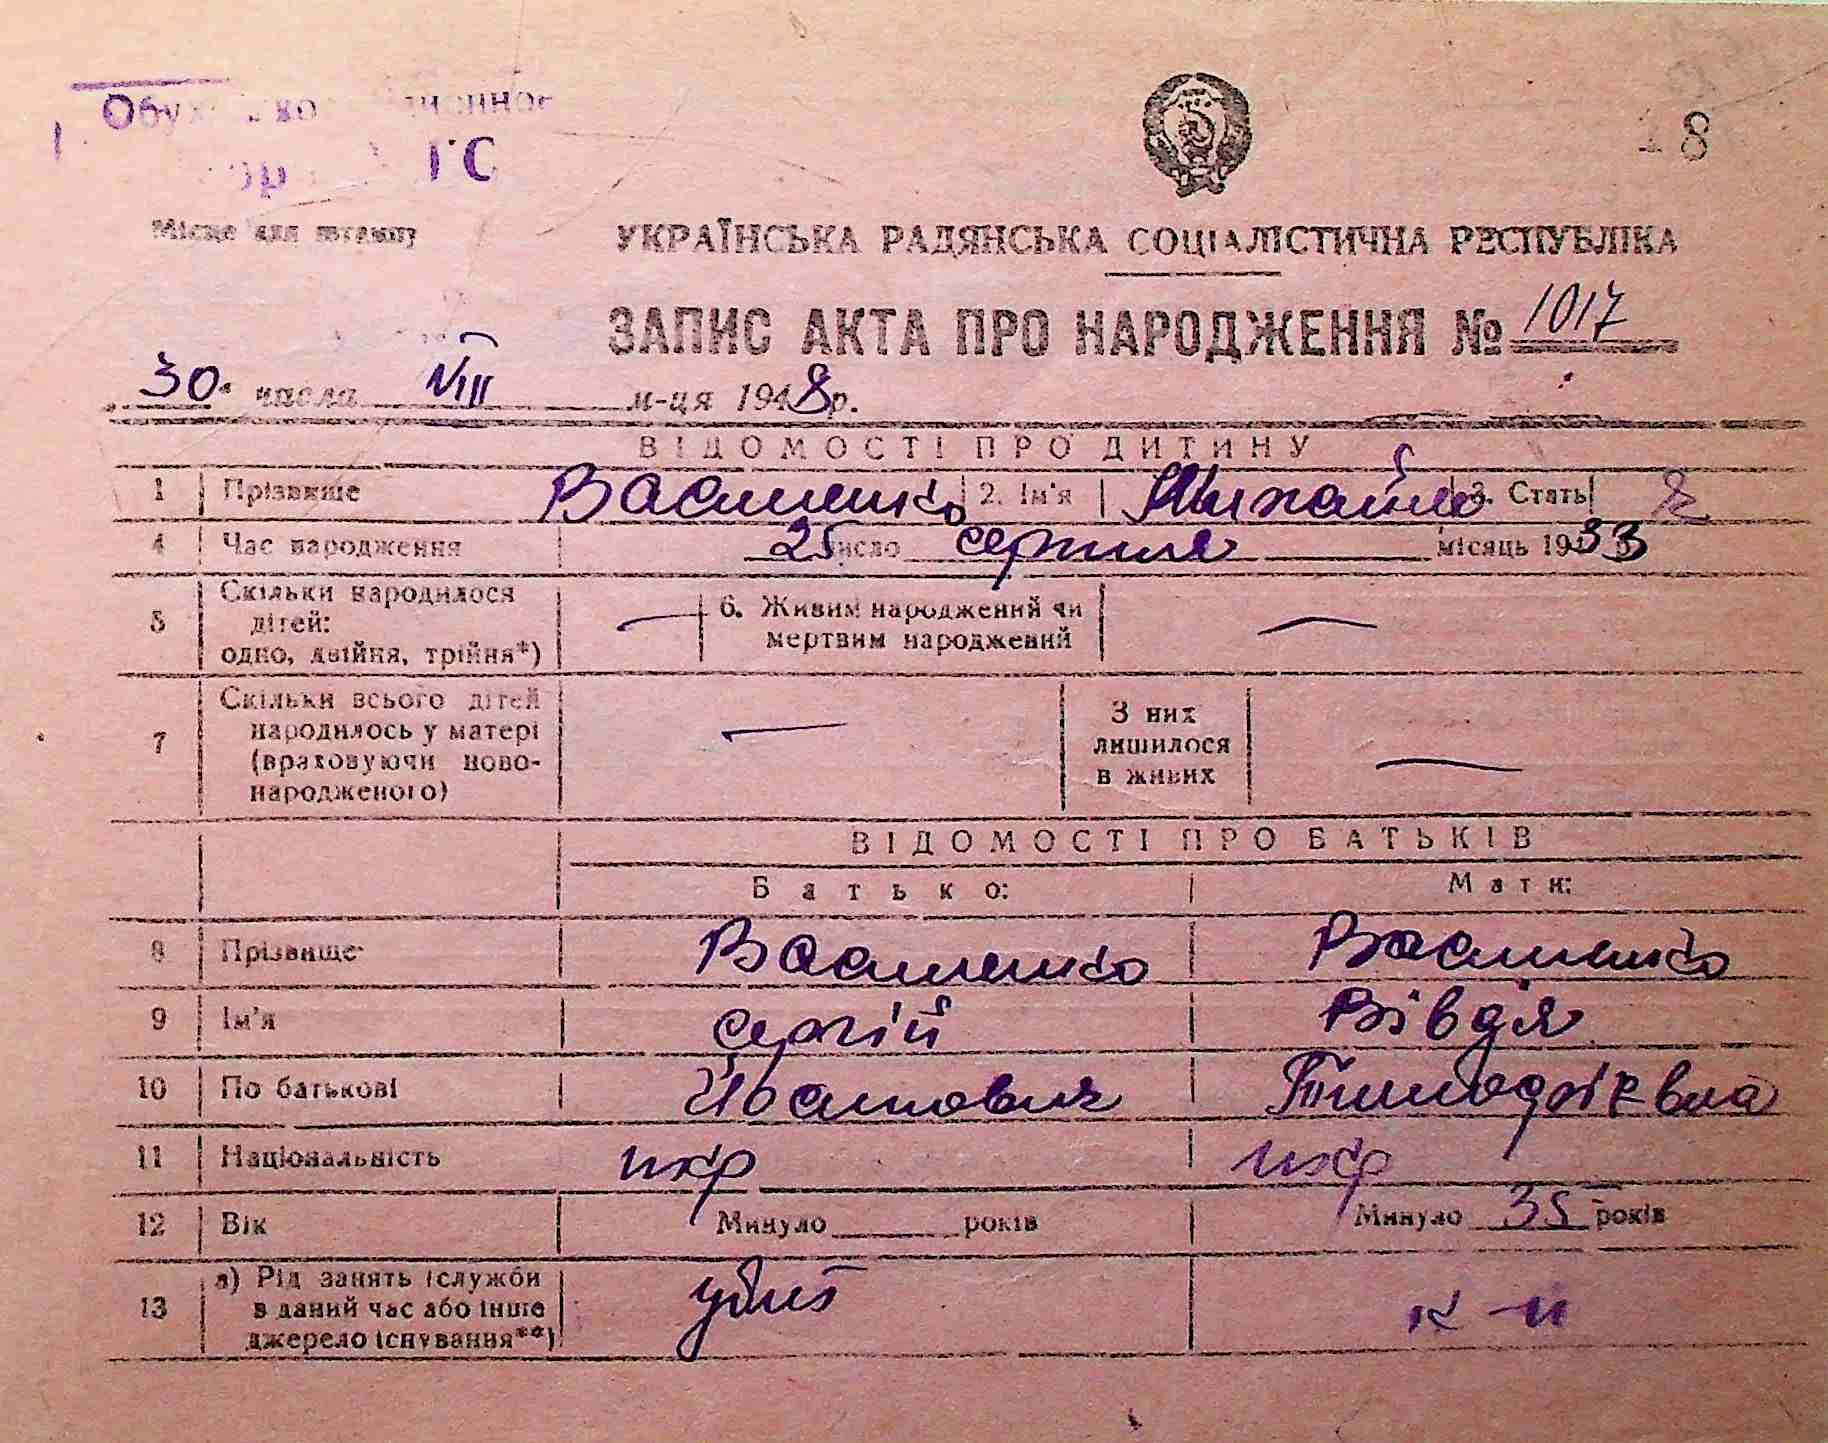 18
Місце для штампу
УКРАЇНСЬКА РАДЯНСЬКА СОЦІАЛІСТИЧНА РЕСПУБЛІКА
ЗАПИС АКТА ПРО НАРОДЖЕННЯ № 1017
30 числа VIII м-ця 1948 р.
ВІДОМОСТІ ПРО ДИТИНУ
1 Прізвище Василенко 2. Ім'я Михайло 3. Стать
4 Час народження 25 число серпня місяць 1933
5 Скільки народилося дітей: одно, двійня, трійня*) — 6. Живим народжений чи мертвим народжений —
7 Скільки всього дітей народилось у матері (враховуючи новонародженого) — З них лишилося в живих —
ВІДОМОСТІ ПРО БАТЬКІВ
Батько: Мати:
8 Прізвище Василенко Василенко
9 Ім'я Сергій Вівдя
10 По батькові Йванович
11 Національність укр укр
12 Вік Минуло років Минуло 35 років
13 а) Рід занять (служби в даний час або інше джерело існування**) убит к-ц